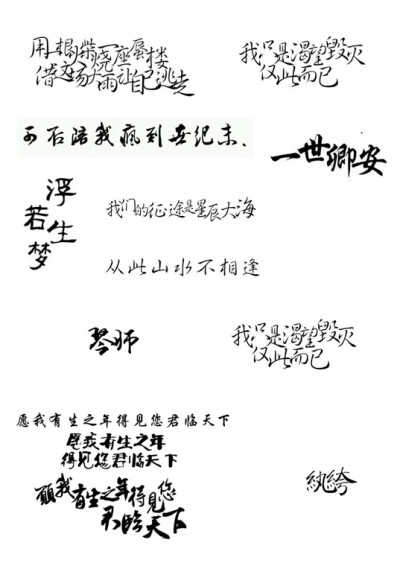 用一根柴烧一座蜃楼
借这场大雨让自己逃走
我只是渴望毁灭
仅此而已
可否陪我疯到世纪末.
一世卿安
浮生
若梦
我们的征途是星辰大海
从此山水不相逢
琴师
我只是渴望毁灭
仅此而已
愿我有生之年得见您君临天下
愿我有生之年
得见您君临天下
愿我有生之年得见您
君临天下
纨绔